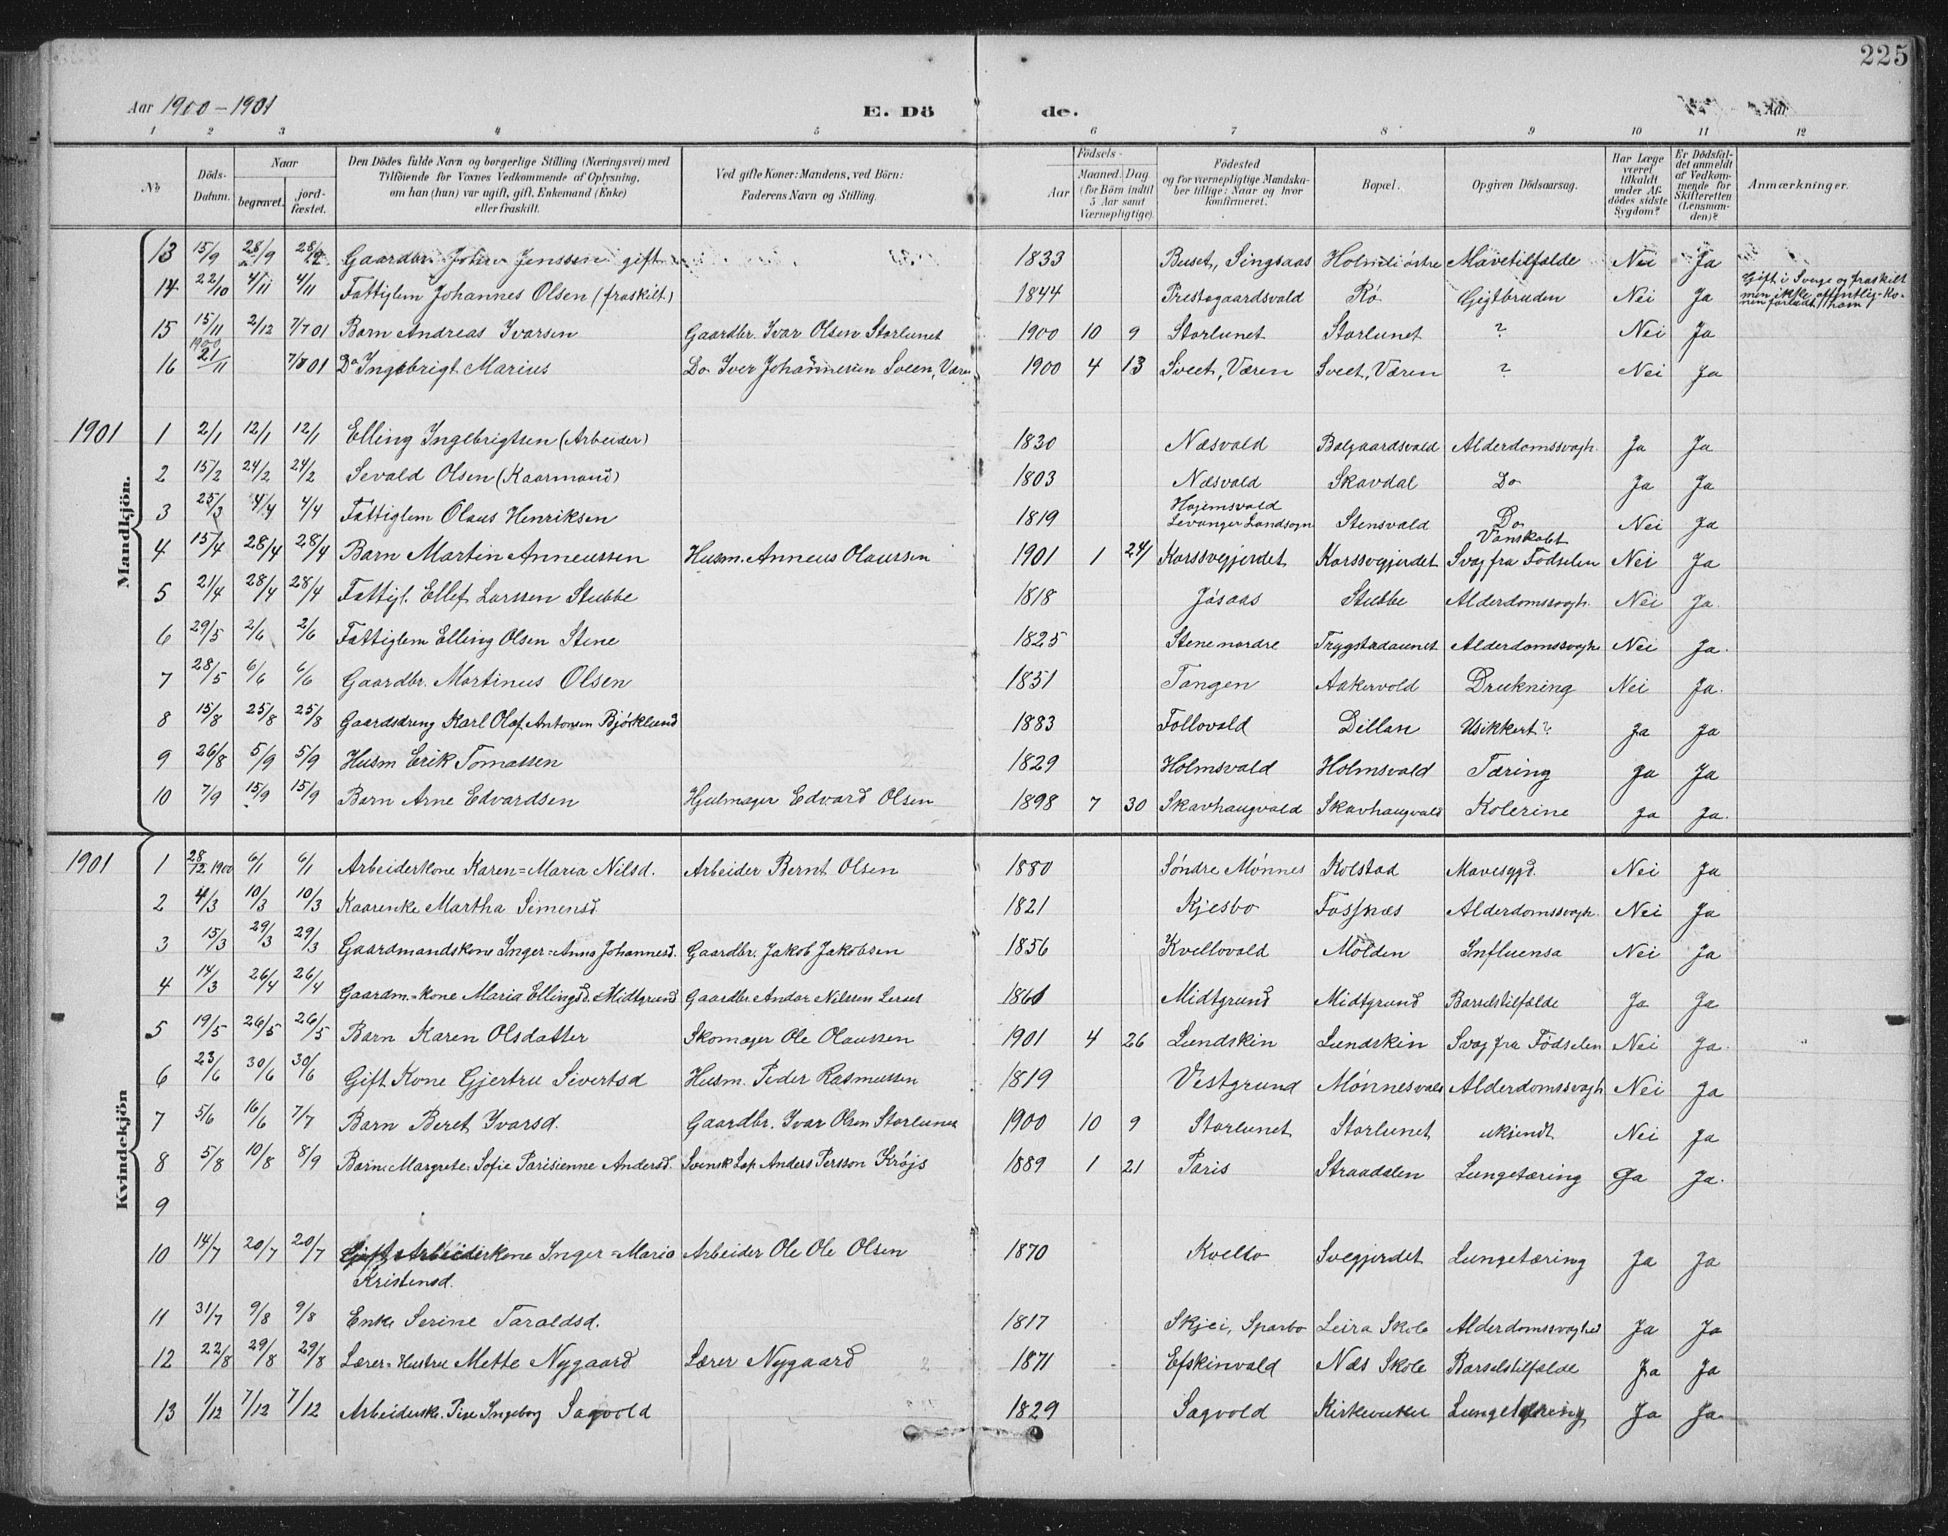 225
Aar 1900-1901 E. Dö de. Aar
1 2 3 4 5 6 7 8 9 10 11 12
No Döds-Datum. Naar begravet. jord-fæstet. Den Dödes fulde Navn og borgerlige Stilling (Næringsvei) med Tilföiende for Voxnes Vedkommende af Oplysning, om han (hun) var ugift, gift, Enkemand (Enke) eller fraskilt. Ved gifte Koner: Mandens, ved Börn: Faderens Navn og Stilling. Födsels- Aar Maaned. Dag (for Börn indtil 5 Aar samt Værnepligtige). Födested og for værnepligtige Mandskaber tillige: Naar og hvor konfirmeret. Bopæl. Opgiven Dödsaarsag. Har Læge været tilkaldt under Afdödes sidste Sygdom? Er Dödsfaldet anmeldt af Vedkommende for Skifteretten (Lensmanden)? Anmærkninger.
Mandkjön.
13 15/9 28/9 28/9 Gaardbr. Johan Jenssen gift 1833 Buset, Singsaas Holmli østre Mavetilfælde Nei Ja
14 22/10 4/11 4/11 Fattiglem Johannes Olsen (fraskilt) 1844 Prestegaardsvald Rø Gigtbruden Nei Ja Gift i Sverige og fraskilt men ikke offentlig. Konen forladt ham
15 15/11 2/12 7/7 01 Barn Andreas Ivarsen Gaardbr. Ivar Olsen Storlunet 1900 10 9 Storlunet Storlunet ? Nei Ja
16 1900 21/11 01 Do Ingebrigt Marius Do Iver Johannesen Sveen, Været 1900 4 13 Sveet, Væren Sveet, Væren ? Nei Ja
1901 1 2/1 12/1 12/1 Elling Ingebrigtsen (Arbeider) 1830 Næsvald Balgaardsvald Alderdomssvagh. Ja Ja
2 15/2 24/2 24/2 Sevald Olsen (Kaarmand) 1803 Næsvald Skavdal Do Ja Ja
3 25/3 4/4 4/4 Fattiglem Olaus Henriksen 1819 Hojemsvald Levanger Landsogn Stensvald Do Nei Ja
4 15/4 28/4 28/4 Barn Martin Anneussen Husm. Anneus Olaussen 1901 1 24 Korssvegjerdet Korssvegjerdet Vanskabt Svag fra Fødselen Nei Ja
5 21/4 28/4 28/4 Fattigl. Ellef Larssen Stubbe 1818 Jøsaas Stubbe Alderdomssvagh. Nei Ja.
6 29/5 2/6 2/6 Fattiglem Elling Olsen Stene 1825 Stene nordre Trygstadaunet Alderdomssvagh Nei Ja.
7 28/5 6/6 6/6 Gaardbr. Martinus Olsen 1851 Tangen Aakervold Drukning Nei Ja.
8 15/8 25/8 25/8 Gaardsdreng Karl Olaf Antonsen Bjørklund 1883 Follovald Dillan Usikkert? Ja Ja
9 26/8 5/9 5/9 Husm Erik Tomassen 1829 Holmsvald Holmsvald Tæring Ja Ja
10 7/9 15/9 15/9 Barn Arne Edvardsen Hjulmager Edvard Olsen 1898 7 30 Skavhaugvald Skavhaugvald Kolerine Ja Ja.
Kvindekjön
1901 1 28/12 1900 6/1 6/1 Arbeiderkone Karen=Maria Nilsd. Arbeider Bernt Olsen 1880 Søndre Mønnes Kolstad Mavesygd. Nei Ja
2 4/3 10/3 10/3 Kaarenke Martha Simensd. 1821 Kjesbo Fossnæs Alderdomssvagh. Nei Ja
3 15/3 29/3 29/3 Gaardmandskone Inger=Anna Johannesd. Gaardbr. Jakob Jakobsen 1856 Kvellovald Molden Influensa Nei Ja
4 14/3 26/4 26/4 Gaardm.=kone Maria Ellingsd. Midtgrund Gaardbr. Andor Nilssen 1861 Midtgrund Midtgrund Barselstilfælde Ja Ja
5 19/5 26/5 26/5 Barn Karen Olsdatter Skomager Ole Olaussen 1901 4 26 Lundskin Lundskin Svag fra Fødselen Nei Ja.
6 23/6 30/6 30/6 Gift Kone Gjertru Sivertsd Husm. Peder Rasmussen 1819 Vestgrund Mønnesvald Alderdomssvagh Nei Ja
7 5/6 16/6 7/7 Barn Beret Ivarsd. Gaardbr. Ivar Olsen Storlunet 1900 10 9 Storlunet Storlunet ukjendt Nei Ja
8 5/8 10/8 8/9 Barn Margrete Sofie Parisienne Andersd. Svensk Lap Anders Persson Krøjs 1889 1 21 Paris Straadalen Lungetæring Ja Ja.
9
10 14/7 20/7 20/7 Gift Arbeiderkone Inger=Maria Arbeider Ole Ole Olsen 1870 Kvello Svegjerdet Lungetæring Ja Ja
Kristensd.
11 31/7 9/8 9/8 Enke Serine Taraldsd. 1817 Skjei, Sparbo Leira Skole Alderdomssvaghed Ja Ja
12 22/8 29/8 29/8 Lærer=Hustru Mette Nygaard Lærer Nygaard 1871 Efskinvald Næs Skole Barselstilfælde Ja Ja
13 1/12 7/12 7/12 Ingeborg Sagvold 1829 Sagvold Lungetæring Ja Ja